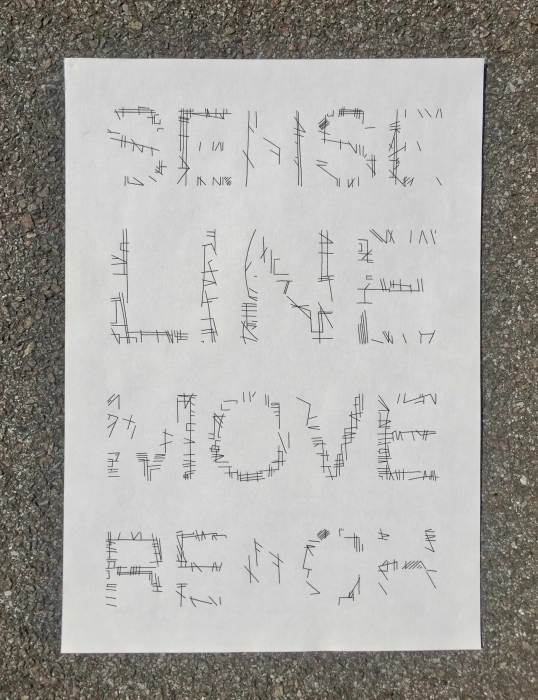 SENSE
LINE
MOVE
REACH